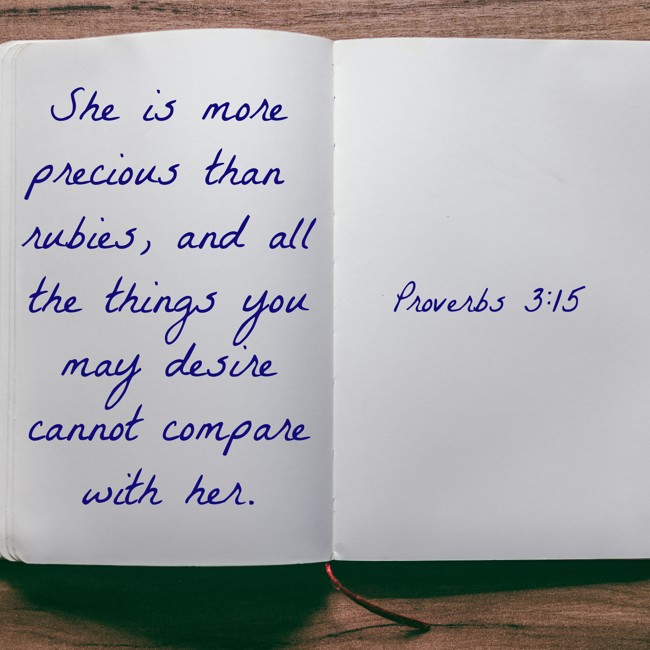 She is more
precious than
rubies, and all
the things you
may desire
cannot compare
with her.
Proverbs 3:15